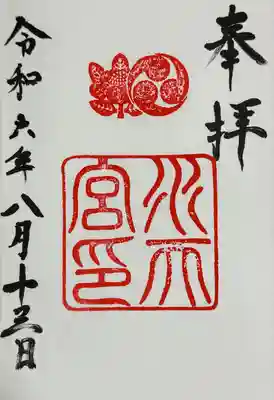 奉拝
水天
宮印
令和六年八月十三日